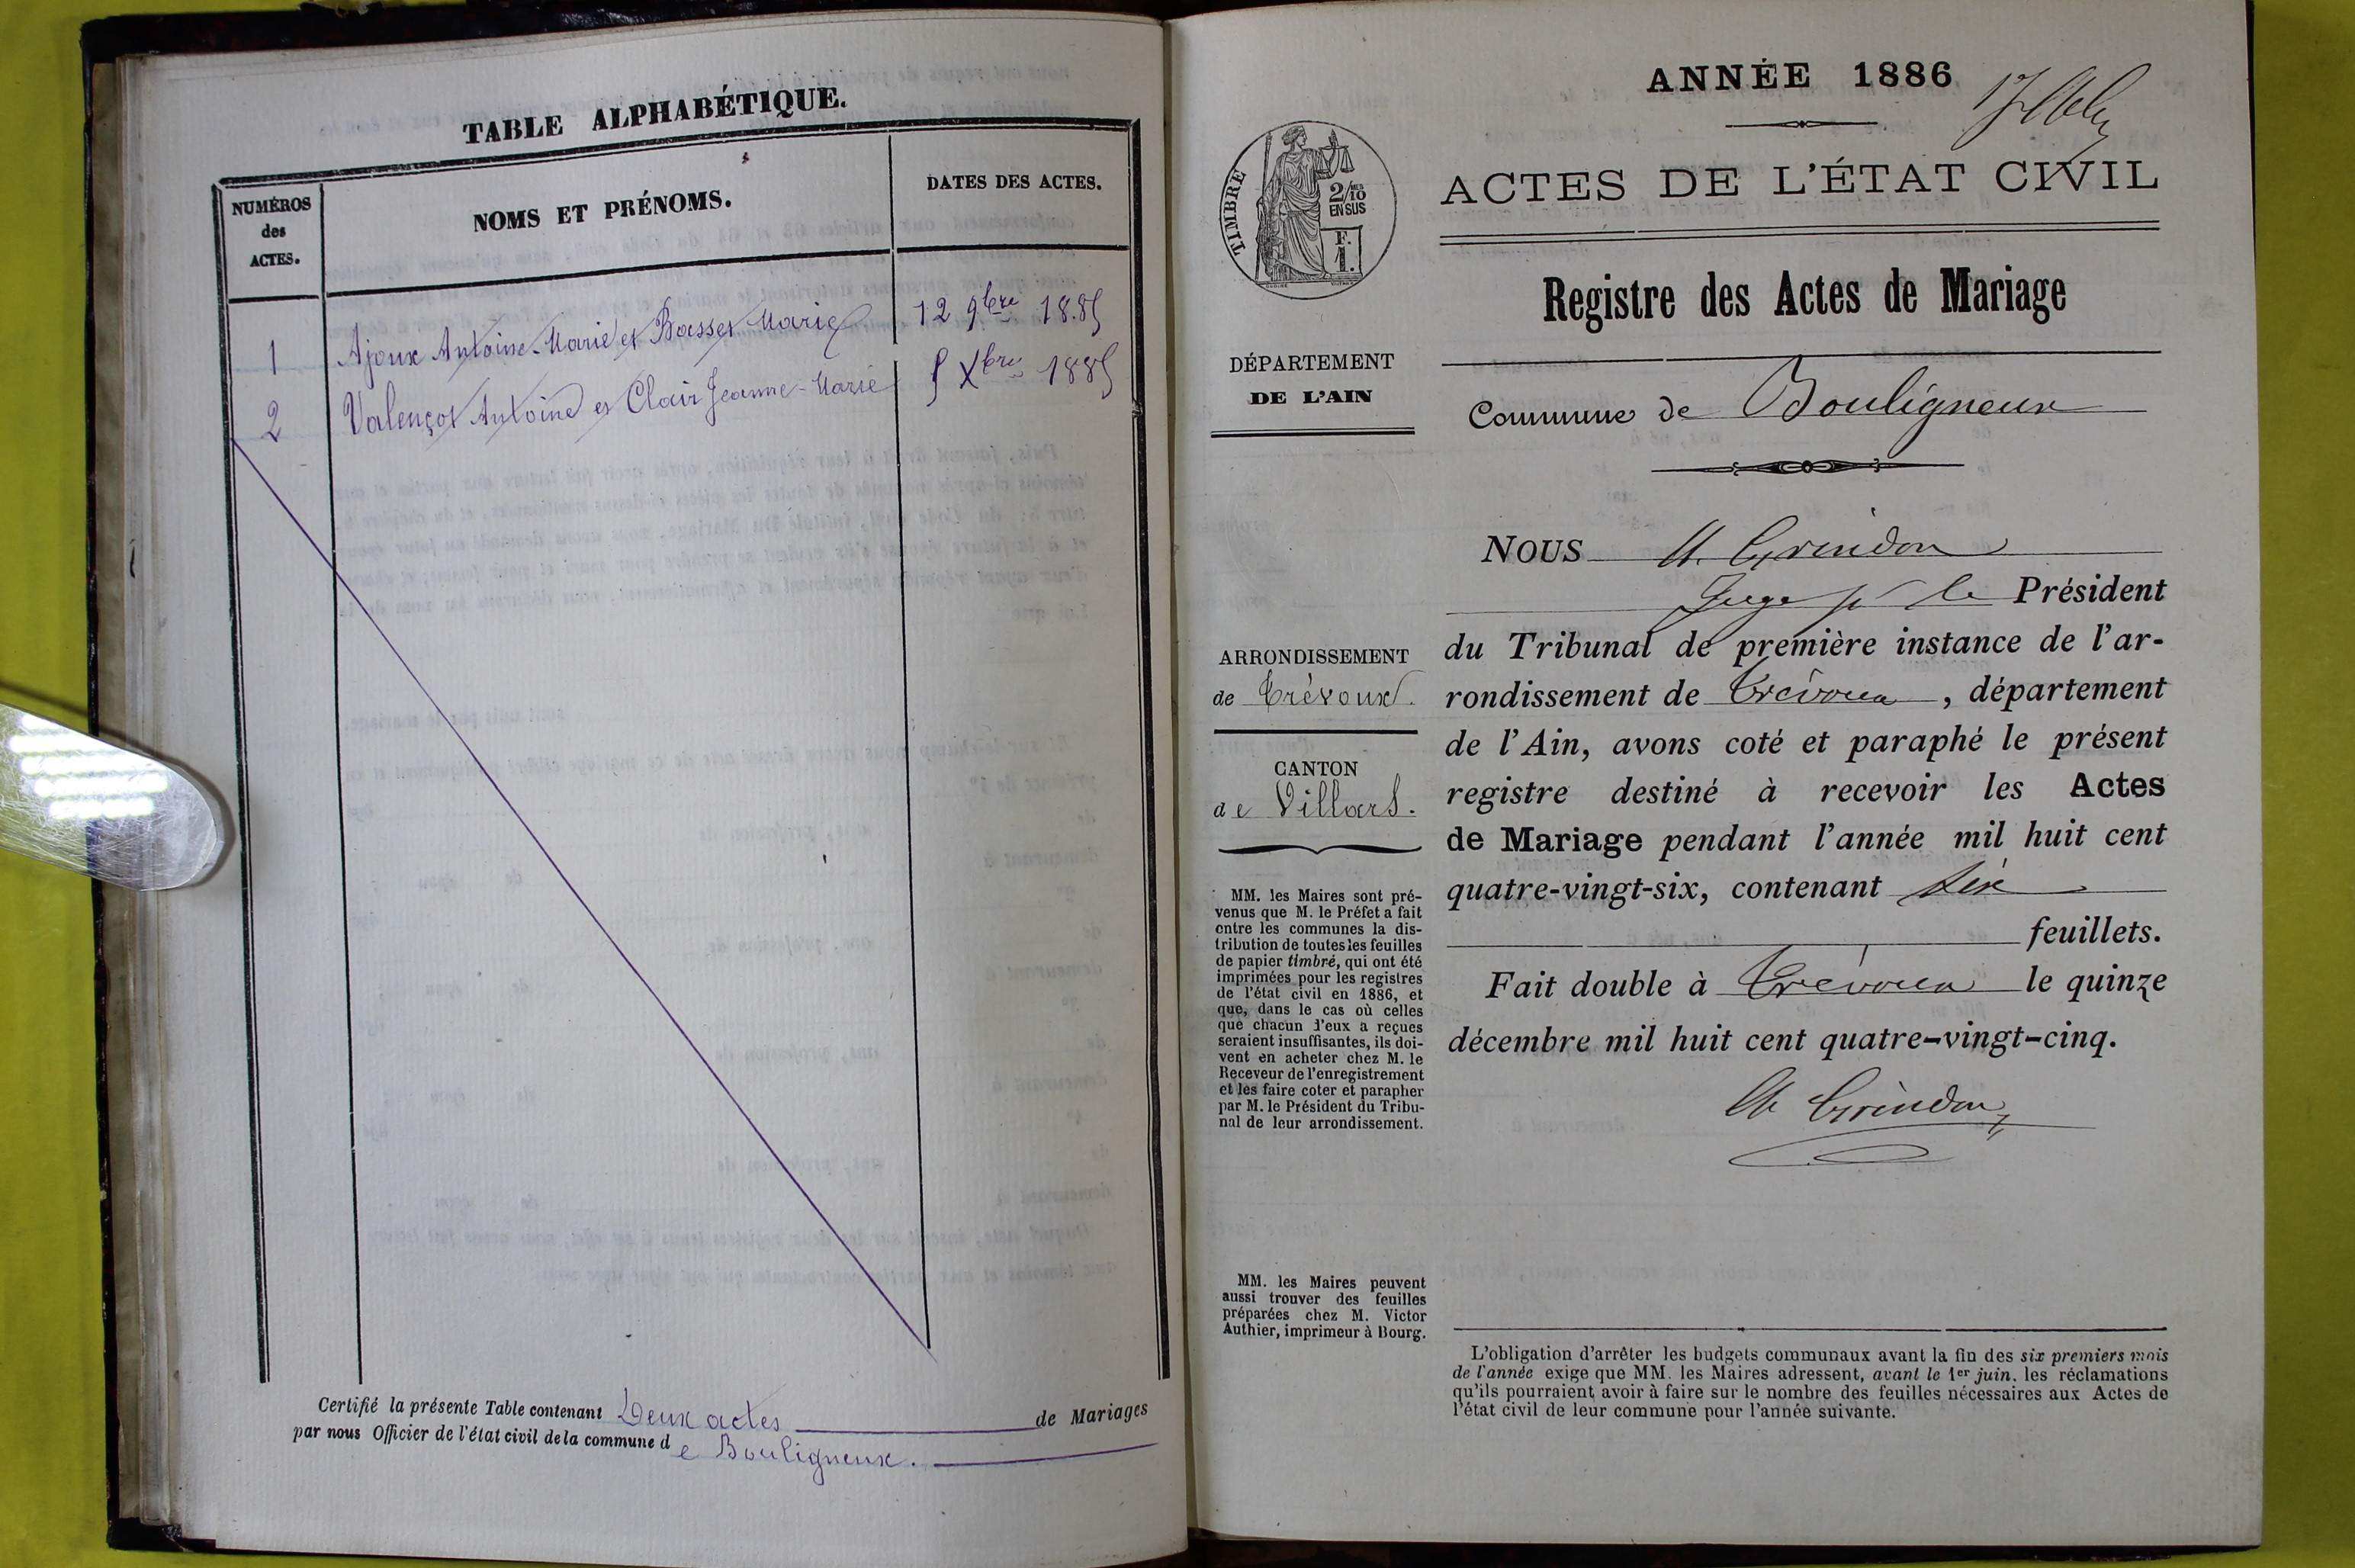 TABLE ALPHABÉTIQUE.
NUMÉROS
des
ACTES.
NOMS ET PRÉNOMS.
DATES DES ACTES.
1 Ajoux Antoine-Marie et Basset Marie 12 9bre 1885
2 Valençot Antoine et Clair Jeanne-Marie 5 Xbre 1885
Certifié la présente Table contenant Deux actes de Mariages
par nous Officier de l'état civil de la commune de Bouligneux.
ANNÉE 1886
ACTES DE L'ÉTAT CIVIL
TIMBRE
2/10
EN SUS
F.
1.
Registre des Actes de Mariage
DÉPARTEMENT
DE L'AIN
Commune de Bouligneux
NOUS Grindon
Juge pr le Président
du Tribunal de première instance de l'ar-
rondissement de Trévoux, département
de l'Ain, avons coté et paraphé le présent
registre destiné à recevoir les Actes
de Mariage pendant l'année mil huit cent
quatre-vingt-six, contenant six
feuillets.
Fait double à Trévoux le quinze
décembre mil huit cent quatre-vingt-cinq.
Grindon
ARRONDISSEMENT
de Trévoux.
CANTON
de Villars.
MM. les Maires sont pré-
venus que M. le Préfet a fait
entre les communes la dis-
tribution de toutes les feuilles
de papier timbré, qui ont été
imprimées pour les registres
de l'état civil en 1886, et
que, dans le cas où celles
que chacun d'eux a reçues
seraient insuffisantes, ils doi-
vent en acheter chez M. le
Receveur de l'enregistrement
et les faire coter et parapher
par M. le Président du Tribu-
nal de leur arrondissement.
MM. les Maires peuvent
aussi trouver des feuilles
préparées chez M. Victor
Authier, imprimeur à Bourg.
L'obligation d'arrêter les budgets communaux avant la fin des six premiers mois
de l'année exige que MM. les Maires adressent, avant le 1er juin, les réclamations
qu'ils pourraient avoir à faire sur le nombre des feuilles nécessaires aux Actes de
l'état civil de leur commune pour l'année suivante.